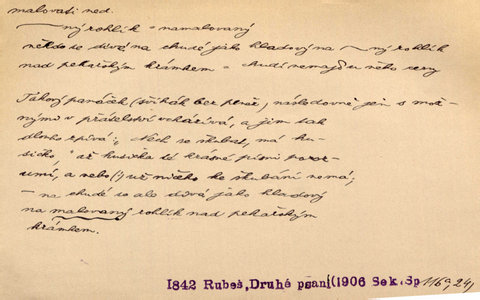 malovati ned.
~ný rohlík = namalovaný
někdo se dívá na chudé jako hladový na ~ný rohlík
nad pekařským krámkem =
Takový panáček (švihák bez peněz, následovně jen s mož-
nými v přátelství vcházívá, a jim tak
dlouho zpívá: „Nech se škubat, má hu-
sičko," až husička té krásné písni poroz-
umí, a nebo (!) už ničko ke škubání nemá;
– na chudé se ale dívá jako hladový
na malovaný rohlík nad pekařským
krámkem.
1842 Rubeš, Druhé psaní (1906 Sek. Sp. 116a, 24)